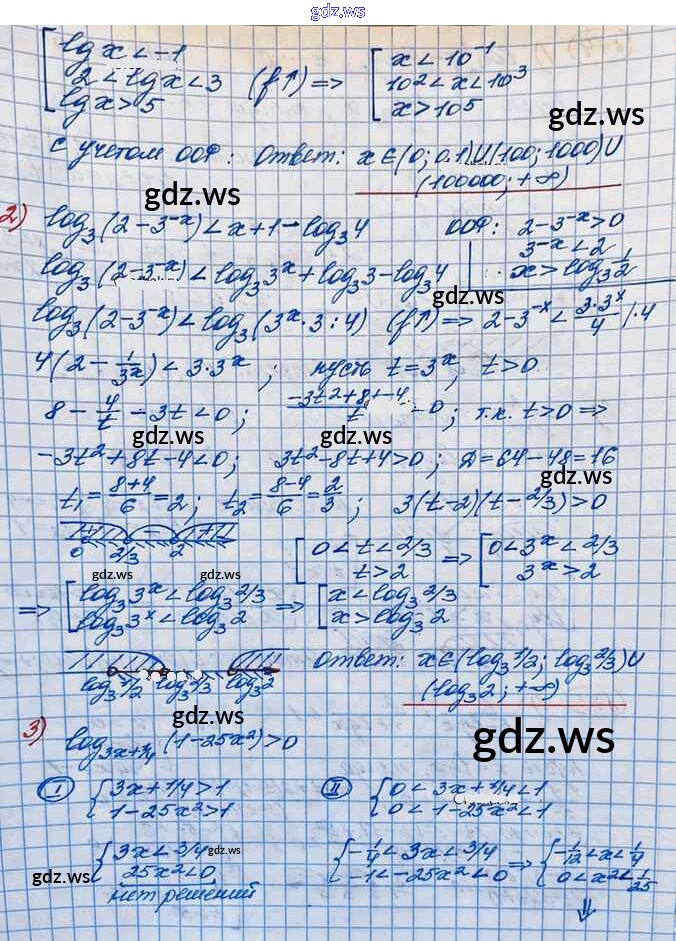 gdz.ws
[ lg x < -1
2 < lg x < 3 (f↑) =>
lg x > 5
[ x < 10⁻¹
10² < x < 10³
x > 10⁵
gdz.ws
с учетом ООФ: Ответ: x ∈ (0; 0.1) ∪ (100; 1000) ∪
(100000; +∞)
gdz.ws
2) log₃(2-3⁻ˣ) < x+1 - log₃4 ООФ: 2-3⁻ˣ > 0
3⁻ˣ < 2
log₃(2-3⁻ˣ) < log₃3ˣ + log₃3 - log₃4 x > log₃ 1/2
gdz.ws
log₃(2-3⁻ˣ) < log₃(3ˣ·3:4) (f↑) => 2-3⁻ˣ < 3·3ˣ/4 |·4
4(2 - 1/3ˣ) < 3·3ˣ; пусть t = 3ˣ, t > 0
8 - 4/t - 3t < 0; -3t²+8t-4/t < 0; т.к. t > 0 =>
gdz.ws
-3t²+8t-4 < 0; 3t²-8t+4 > 0; D = 64-48 = 16
gdz.ws
t₁ = 8+4/6 = 2; t₂ = 8-4/6 = 2/3; 3(t-2)(t-2/3) > 0
+ - +
0 2/3 2
[ 0 < t < 2/3
t > 2
=> [ 0 < 3ˣ < 2/3
3ˣ > 2
gdz.ws gdz.ws
=> [ log₃3ˣ < log₃2/3
log₃3ˣ < log₃2
=> [ x < log₃2/3
x > log₃2
log₃1/2 log₃2/3 log₃2
Ответ: x ∈ (log₃1/2; log₃2/3) ∪
(log₃2; +∞)
gdz.ws
3) log₃ₓ₊₁/₄(1-25x²) > 0
gdz.ws
I { 3x+1/4 > 1
1-25x² > 1
II { 0 < 3x+1/4 < 1
0 < 1-25x² < 1
{ 3x < 3/4
25x² < 0
нет решений
gdz.ws
gdz.ws
{ -1/4 < 3x < 3/4
-1 < -25x² < 0
=> { -1/12 < x < 1/4
0 < x² < 1/25
⇓
gdz.ws